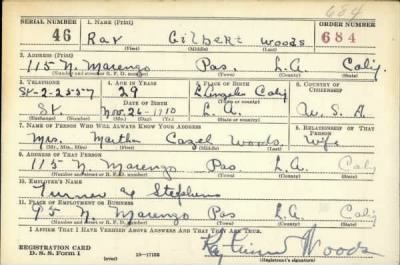 684
SERIAL NUMBER 1. NAME (Print) ORDER NUMBER
46 Ray Gilbert Woods 684
(First) (Middle) (Last)
2. ADDRESS (Print)
115 N. Marengo Pas. L.A. Calif.
(Number and street or R. F. D. number) (Town) (County) (State)
3. TELEPHONE 4. AGE IN YEARS 5. PLACE OF BIRTH 6. COUNTRY OF CITIZENSHIP
29 Calif
DATE OF BIRTH
St. Nov. 26-1910 L.A. U.S.A.
7. NAME OF PERSON WHO WILL ALWAYS KNOW YOUR ADDRESS 8. RELATIONSHIP OF THAT PERSON
Mrs. Martha Woods Wife
(Mr., Mrs., Miss) (First) (Middle) (Last)
9. ADDRESS OF THAT PERSON
115 N. Marengo Pas. L.A. Calif
(Number and street or R. F. D. number) (Town) (County) (State)
10. EMPLOYER'S NAME
Turner & Stephens
11. PLACE OF EMPLOYMENT OR BUSINESS
95 N. Marengo Pas L.A. Calif
(Number and street or R. F. D. number) (Town) (County) (State)
I AFFIRM THAT I HAVE VERIFIED ABOVE ANSWERS AND THAT THEY ARE TRUE.
REGISTRATION CARD
D. S. S. Form 1 (over) Woods
(Registrant's signature)